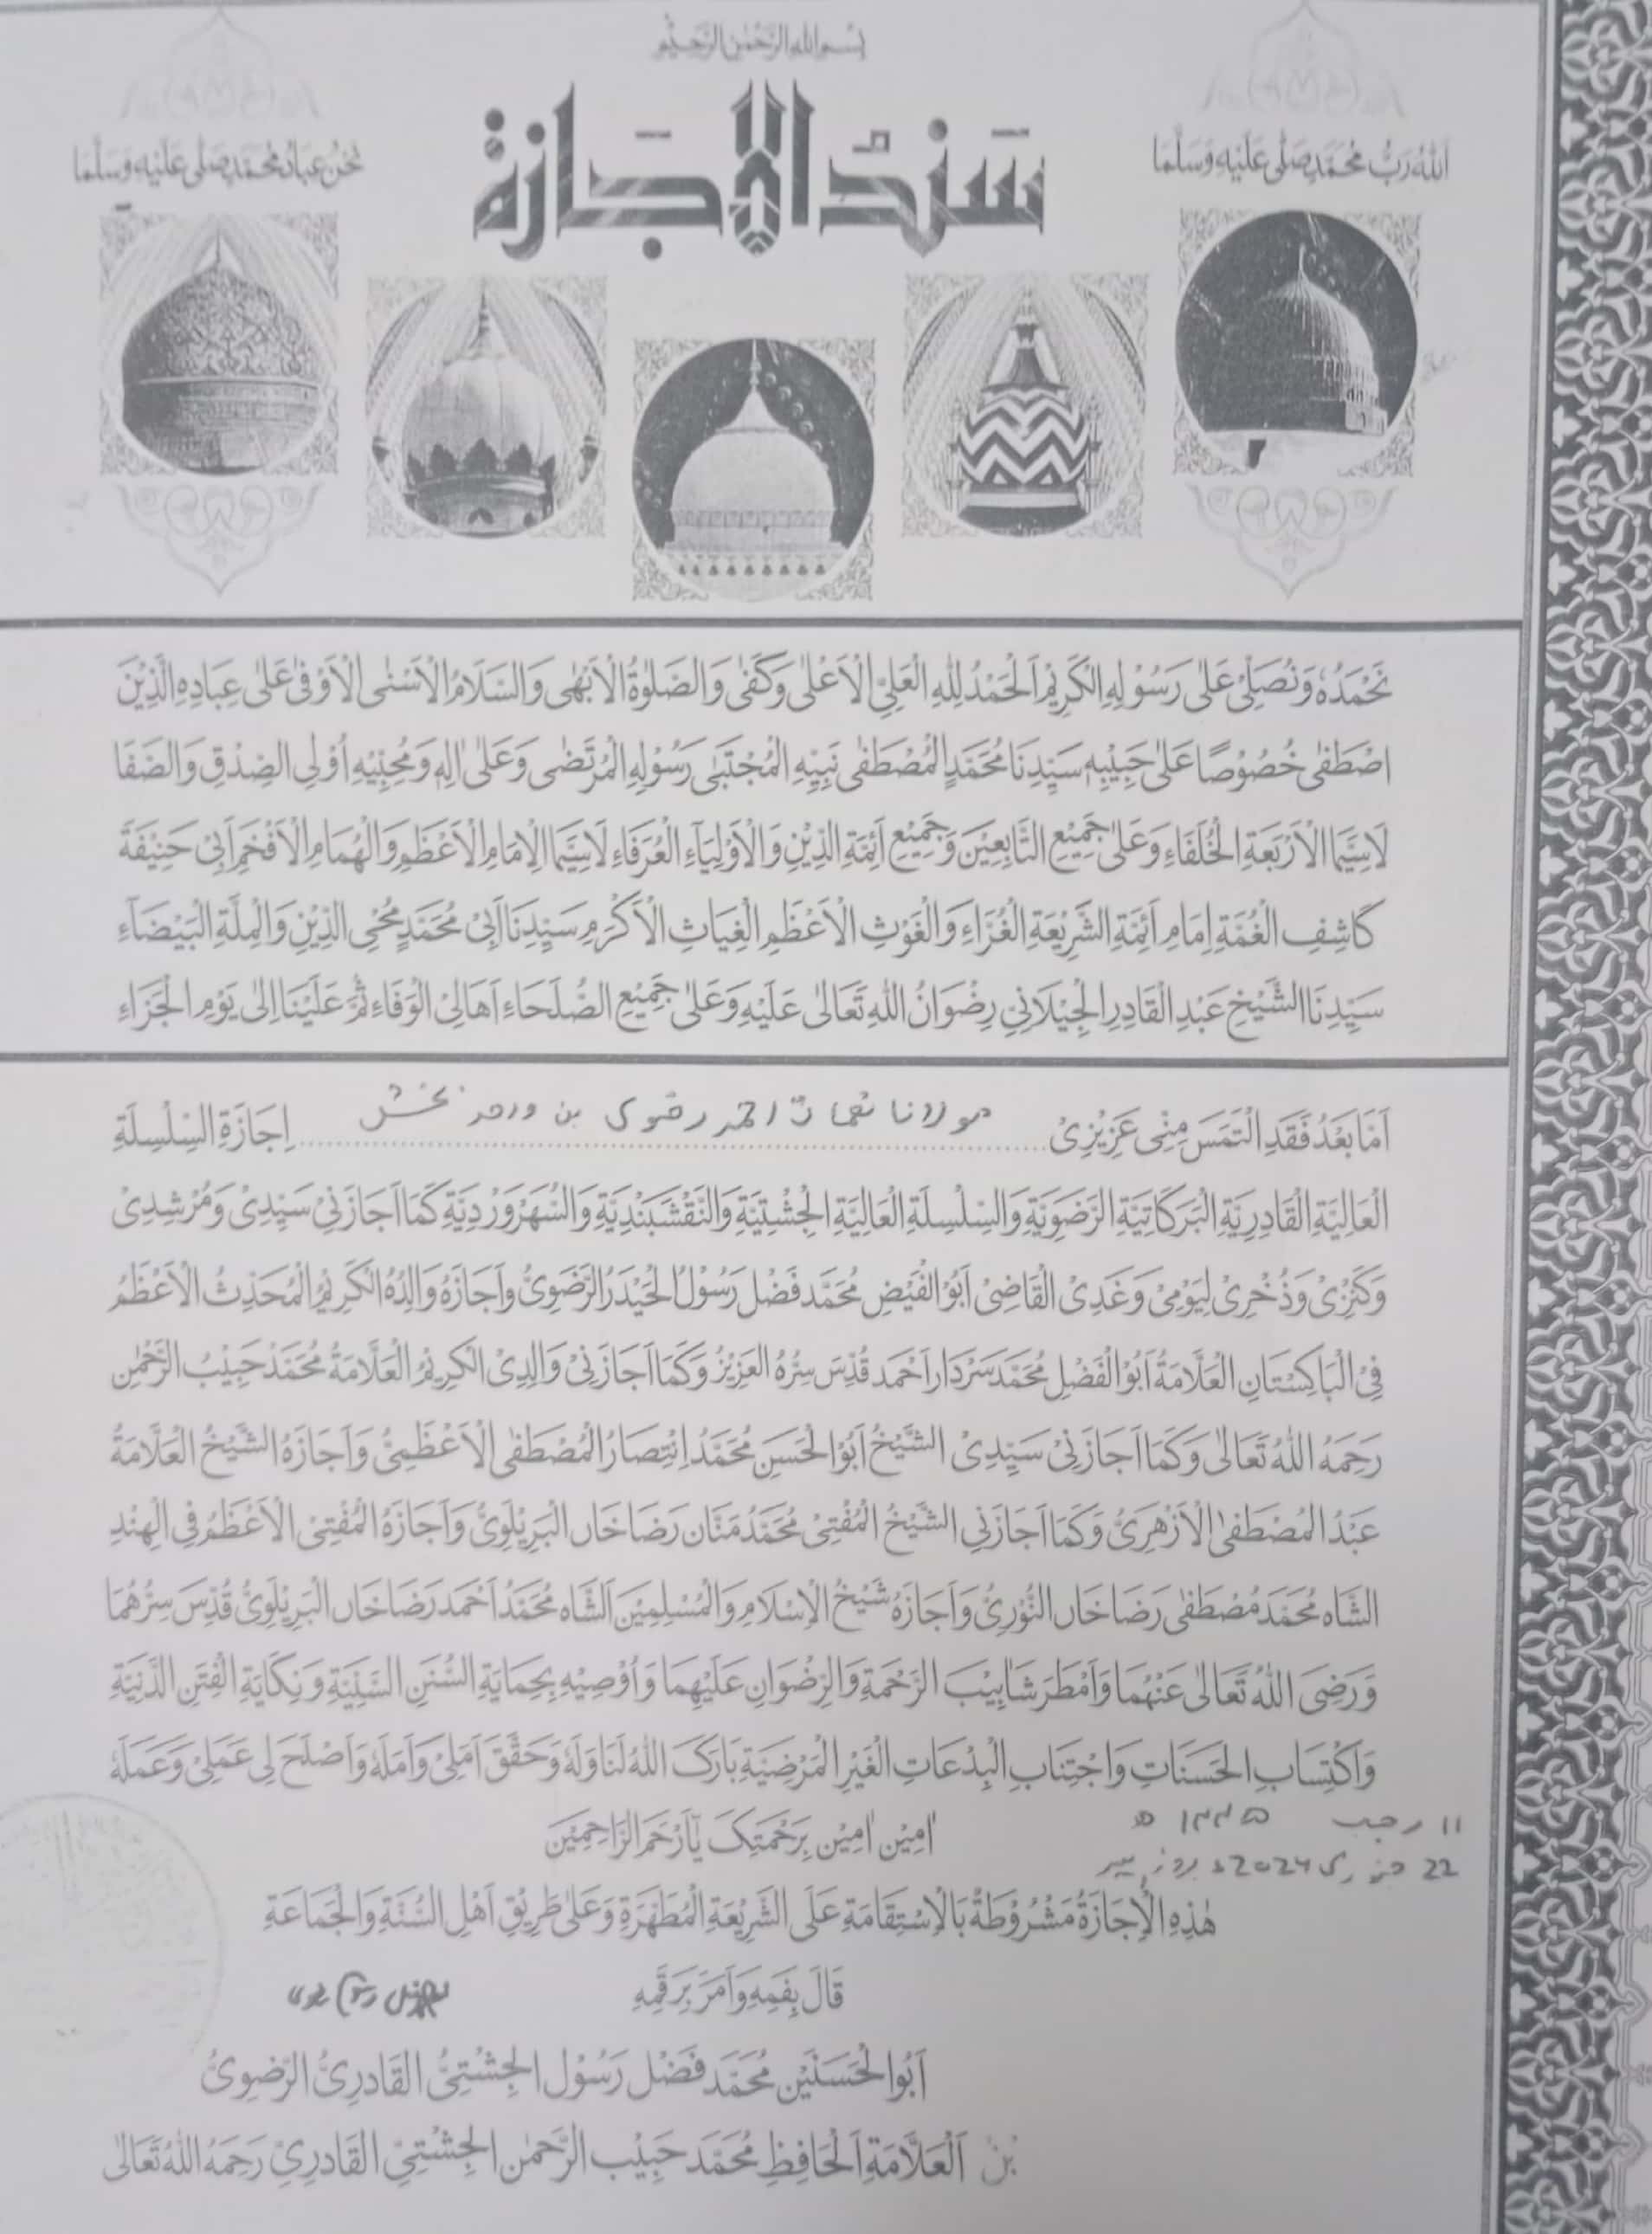 بِسْمِ اللهِ الرَّحْمٰنِ الرَّحِيْمِ
اَللّٰهُ رَبُّ مُحَمَّدٍ صَلّٰى عَلَيْهِ وَسَلَّمَا
سَنَدُ الْاِجَازَة
نَحْنُ عِبَادُ مُحَمَّدٍ صَلّٰى عَلَيْهِ وَسَلَّمَا
نَحْمَدُهٗ وَنُصَلِّىْ عَلٰى رَسُوْلِهِ الْكَرِيْمِ اَلْحَمْدُ لِلّٰهِ الْعَلِيِّ الْاَعْلٰى وَكَفٰى وَالصَّلٰوةُ الْاَبْهٰى وَالسَّلَامُ الْاَسْنٰى الْاَوْفٰى عَلٰى عِبَادِهِ الَّذِيْنَ
اصْطَفٰى خُصُوْصًا عَلٰى حَبِيْبِهٖ سَيِّدِنَا مُحَمَّدٍ الْمُصْطَفٰى نَبِيِّهِ الْمُجْتَبٰى رَسُوْلِهِ الْمُرْتَضٰى وَعَلٰى اٰلِهٖ وَمُحِبِّيْهِ اُوْلِى الصِّدْقِ وَالصَّفَا
لَاسِيَّمَا الْاَرْبَعَةِ الْخُلَفَاءِ وَعَلٰى جَمِيْعِ التَّابِعِيْنَ وَجَمِيْعِ اَئِمَّةِ الدِّيْنِ وَالْاَوْلِيَآءِ الْعُرَفَاءِ لَاسِيَّمَا الْاِمَامِ الْاَعْظَمِ وَالْهُمَامِ الْاَفْخَمِ اَبِىْ حَنِيْفَةَ
كَاشِفِ الْغُمَّةِ اِمَامِ اَئِمَّةِ الشَّرِيْعَةِ الْغُرَّاءِ وَالْغَوْثِ الْاَعْظَمِ الْغِيَاثِ الْاَكْرَمِ سَيِّدِنَا اَبِىْ مُحَمَّدٍ مُحْىِ الدِّيْنِ وَالْمِلَّةِ الْبَيْضَآءِ
سَيِّدِنَا الشَّيْخِ عَبْدِ الْقَادِرِ الْجِيْلَانِىِ رِضْوَانُ اللهِ تَعَالٰى عَلَيْهِ وَعَلٰى جَمِيْعِ الصُّلَحَاءِ اَهَالِىْ الْوَفَاءِ ثُمَّ عَلَيْنَا اِلٰى يَوْمِ الْجَزَاءِ
اَمَّا بَعْدُ فَقَدِ الْتَمَسَ مِنِّى عَزِيْزِىْ مولانا احمد رضوی بن بخش اِجَازَةِ السِّلْسِلَةِ
الْعَالِيَّةِ الْقَادِرِيَّةِ الْبَرَكَاتِيَّةِ الرَّضَوِيَّةِ وَالسِّلْسِلَةِ الْعَالِيَّةِ الْجِشْتِيَّةِ وَالنَّقْشَبَنْدِيَّةِ وَالسُّهَرْوَرْدِيَّةِ كَمَا اَجَازَنِىْ سَيِّدِىْ وَمُرْشِدِىْ
وَكَنْزِىْ وَذُخْرِىْ لِيَوْمِىْ وَغَدِىْ الْقَاضِىْ اَبُو الْفَيْضِ مُحَمَّد فَضْل رَسُوْلُ الْحَيْدَرُ الرَّضَوِىُّ وَاَجَازَهٗ وَالِدُهُ الْكَرِيْمُ الْمُحَدِّثُ الْاَعْظَمُ
فِىْ الْبَاكِسْتَانِ الْعَلَّامَةُ اَبُوْ الْفَضْلِ مُحَمَّد سَرْدَار اَحْمَد قُدِّسَ سِرُّهُ الْعَزِيْزُ وَكَمَا اَجَازَنِىْ وَالِدِىْ الْكَرِيْمُ الْعَلَّامَةُ مُحَمَّدْ حَبِيْبُ الرَّحْمٰنِ
رَحِمَهُ اللهُ تَعَالٰى وَكَمَا اَجَازَنِىْ سَيِّدِىْ الشَّيْخُ اَبُوْ الْحَسَنِ مُحَمَّدُ اِنْتِصَارُ الْمُصْطَفٰى الْاَعْظَمِىُّ وَاَجَازَهُ الشَّيْخُ الْعَلَّامَةُ
عَبْدُ الْمُصْطَفٰى الْاَزْهَرِىُّ وَكَمَا اَجَازَنِى الشَّيْخُ الْمُفْتِىْ مُحَمَّدْ مَنَّان رَضَا خَان الْبَرِيْلَوِىُّ وَاَجَازَهُ الْمُفْتِىْ الْاَعْظَمُ فِى الْهِنْدِ
الشَّاه مُحَمَّد مُصْطَفٰى رَضَا خَان النُّوْرِىُّ وَاَجَازَهُ شَيْخُ الْاِسْلَامِ وَالْمُسْلِمِيْنَ اَلشَّاه مُحَمَّدُ اَحْمَد رَضَا خَان الْبَرِيْلَوِىُّ قُدِّسَ سِرُّهُمَا
وَرَضِىَ اللهُ تَعَالٰى عَنْهُمَا وَاَمْطَرَ شَاٰبِيْبَ الرَّحْمَةِ وَالرِّضْوَانِ عَلَيْهِمَا وَاُوْصِيْهِ بِحِمَايَةِ السُّنَنِ السَّنِيَّةِ وَنِكَايَةِ الْفِتَنِ الدَّنِيَّةِ
وَاكْتِسَابِ الْحَسَنَاتِ وَاجْتِنَابِ الْبِدْعَاتِ الْغَيْرِ الْمَرْضِيَّةِ بَارَكَ اللهُ لَنَا وَلَهٗ وَحَقَّقَ اَمَلِىْ وَاَمَلَهٗ وَاَصْلَحَ لِى عَمَلِىْ وَعَمَلَهٗ
اٰمِيْن اٰمِيْن بِرَحْمَتِكَ يَا اَرْحَمَ الرَّاحِمِيْنَ
۱۱ رجب ۱۴۴۵ ھ
22 جنوری 2024ء بروز پیر
هٰذِهِ الْاِجَازَةُ مَشْرُوْطَةٌ بَالْاِسْتِقَامَةِ عَلَى الشَّرِيْعَةِ الْمُطَهَّرَةِ وَعَلٰى طَرِيْقِ اَهْلِ السُّنَّةِ وَالْجَمَاعَةِ
قَالَ بِفَمِهٖ وَاَمَرَ بِرَقَمِهٖ
اَبُوا الْحَسَنَيْن مُحَمَّد فَضْل رَسُوْل الْجِشْتِىُّ الْقَادِرِىُّ الرَّضَوِىُّ
بْنُ اَلْعَلَّامَةِ اَلْحَافِظِ مُحَمَّد حَبِيْب الرَّحمٰن الْجِشْتِىِّ الْقَادِرِىِّ رَحِمَهُ اللهُ تَعَالٰى